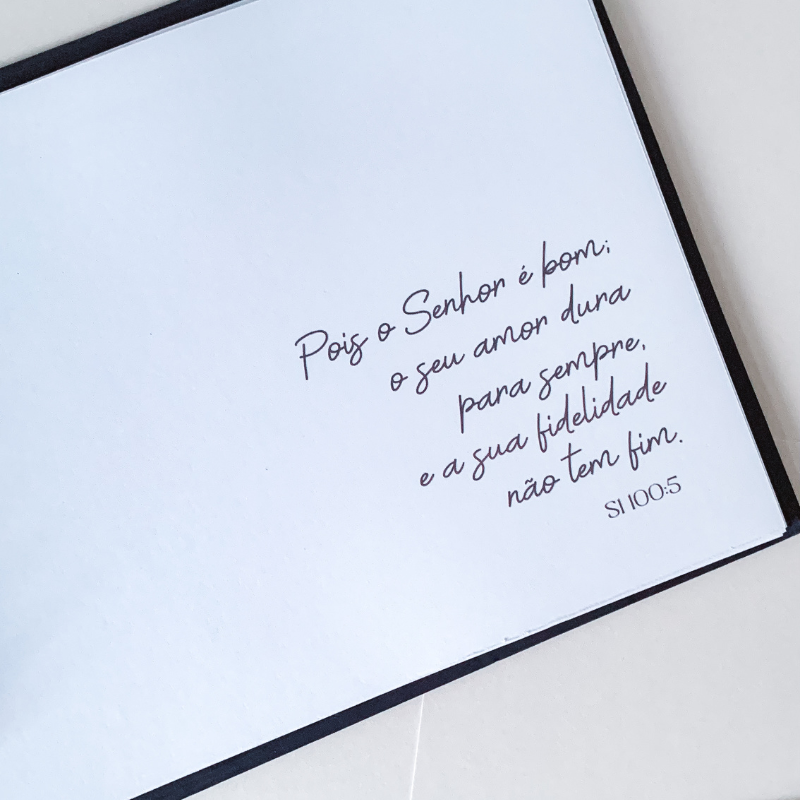 Pois o Senhor é bom;
o seu amor dura
para sempre,
e a sua fidelidade
não tem fim.
Sl 100:5